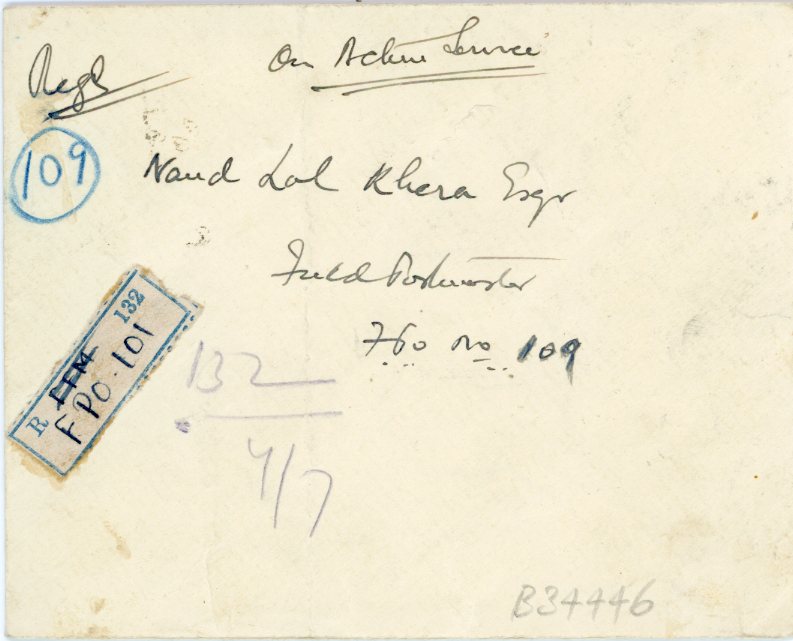 Regd On Active Service
109
Nand Lal Khera Esqr
Field Postmaster
FPO No 109
R 132
FPO-101
132
4/7
B34446